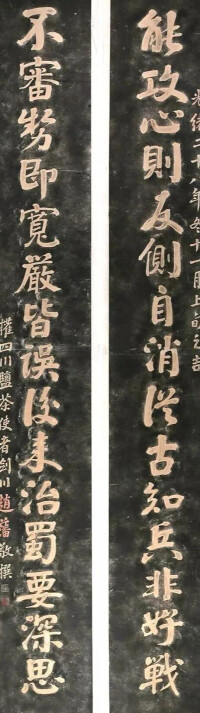 光緒二十八年冬十一月上旬之吉
能攻心則反側自消從古知兵非好戰
不審勢即寬嚴皆誤後來治蜀要深思
權四川鹽茶使者劍川趙藩敬撰